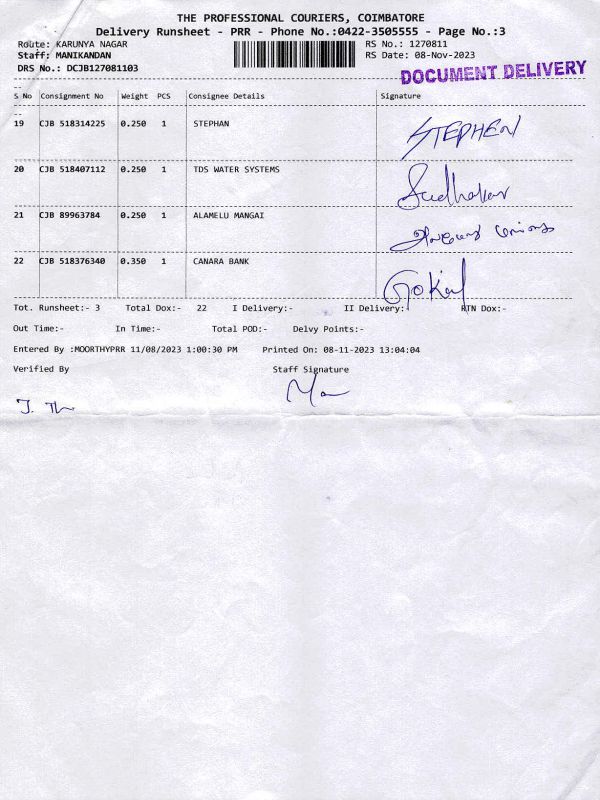 THE PROFESSIONAL COURIERS, COIMBATORE
Delivery Runsheet - PRR - Phone No.:0422-3505555 - Page No.:3
Route: KARUNYA NAGAR RS No.: 1270811
Staff: MANIKANDAN RS Date: 08-Nov-2023
DRS No.: DCJB127081103 DOCUMENT DELIVERY
S No Consignment No Weight PCS Consignee Details Signature
19 CJB 518314225 0.250 1 STEPHAN STEPHEN
20 CJB 518407112 0.250 1 TDS WATER SYSTEMS Sudhakar
21 CJB 89963784 0.250 1 ALAMELU MANGAI
22 CJB 518376340 0.350 1 CANARA BANK Gokul
Tot. Runsheet:- 3 Total Dox:- 22 I Delivery:- II Delivery:- RTN Dox:-
Out Time:- In Time:- Total POD:- Delvy Points:-
Entered By :MOORTHYPRR 11/08/2023 1:00:30 PM Printed On: 08-11-2023 13:04:04
Verified By Staff Signature